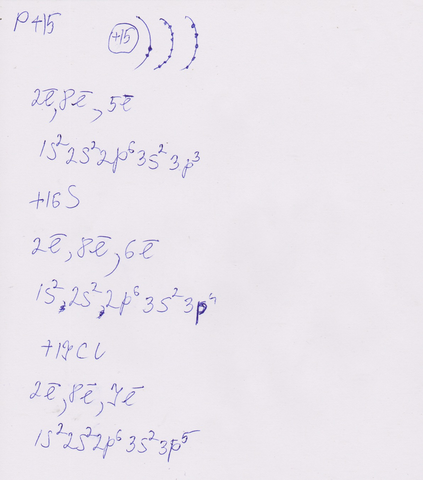 P+15 +15
2ē, 8ē, 5ē
1s²2s²2p⁶3s²3p³
+16S
2ē, 8ē, 6ē
1s², 2s², 2p⁶3s²3p⁴
+17Cl
2ē, 8ē, 7ē
1s²2s²2p⁶3s²3p⁵